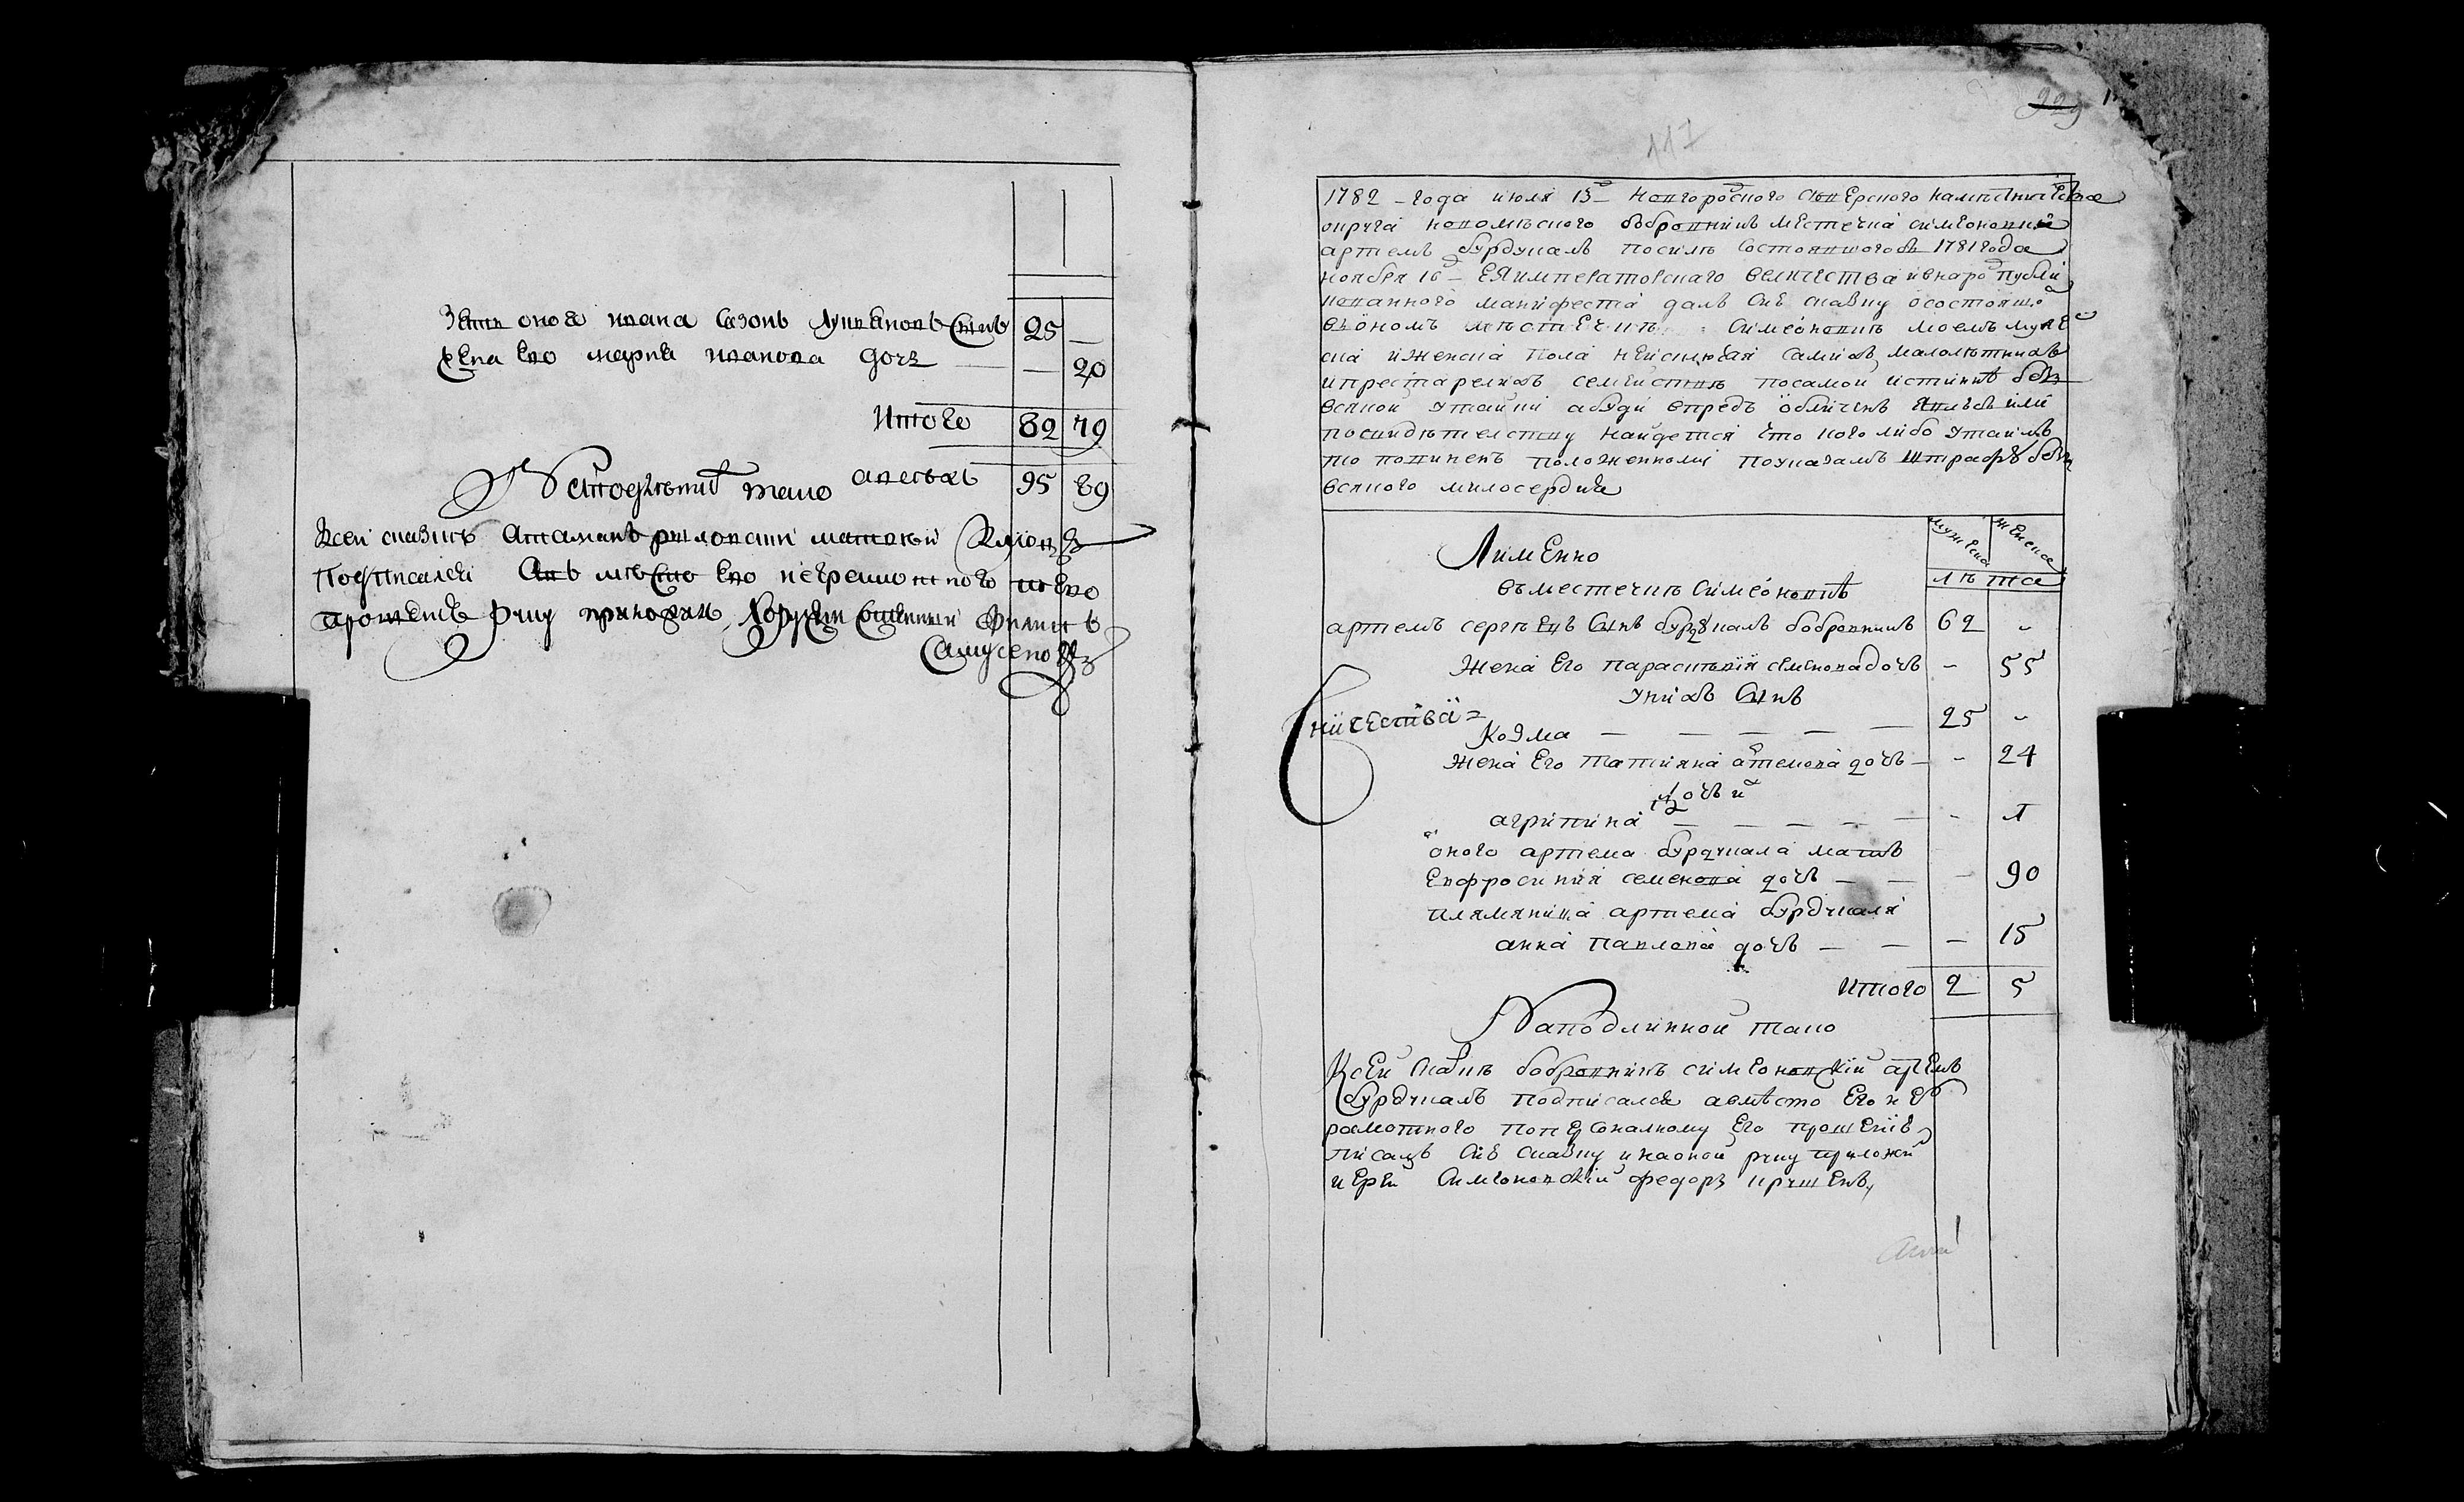 Зять оноя ивана Сазонъ Лукяновъ Снъ 25 —
жена ево мария иванова дочъ — — 20
Итого 82 79
а всехъ 95 89
На подлинной тако
К сей сказкъ Атаманъ
Подписался А въ мѣсто ево неграмотного
прошение руку приложилъ
Самусенокъ
229
117
1782 – года июля 13 д Новгородского Сѣверского намѣсничества
округа коропского бобровникъ местечка симеоновки
артемъ бурдукалъ по силѣ состоявшогося 1781 года
ноября 16 д – ЕЯ императорскаго величества и в народ публи
кованного манифеста далъ сию скаску о состоящо
въ ономъ мѣстечкѣ симеоновкѣ моемъ муже
ска и женска пола не исключая самихъ малолѣтнихъ
и престарелихъ семействѣ по самой истиннѣ безъ
всякой утайки а буди впредъ обличенъ явлюсь или
по свидѣтелству найдется что кого либо утаилъ
то повиненъ положенному по указамъ штрафу безъ
всякого милосердия
А имЕнно
мужеска женска
лѣта
въ местечкѣ Симеоновкѣ
артемъ сергѣевъ Сынъ бурдукалъ бобровникъ 62 –
Жена Его параскѣвия семенова дочъ – 55
У нихъ Сынъ
Козма — — — — — 25 –
жена Его татияна артемова дочъ – – 24
У нихъ дочъ
агрипина — — — — — – 1
оного артема бурдукала мать
Евфросиния семенова дочъ — — – 90
племяница артема бурдукала
анна павлова дочъ — — – 15
итого 2 5
На подлинной тако
К сей Скаскѣ бобровникъ симеоновский артемъ
бурдукалъ подписался а вмѣсто Его нег
рамотного по персоналному Его прошению
писалъ Сию Скаску и на оной руку приложи
иерей Симеоновский федоръ